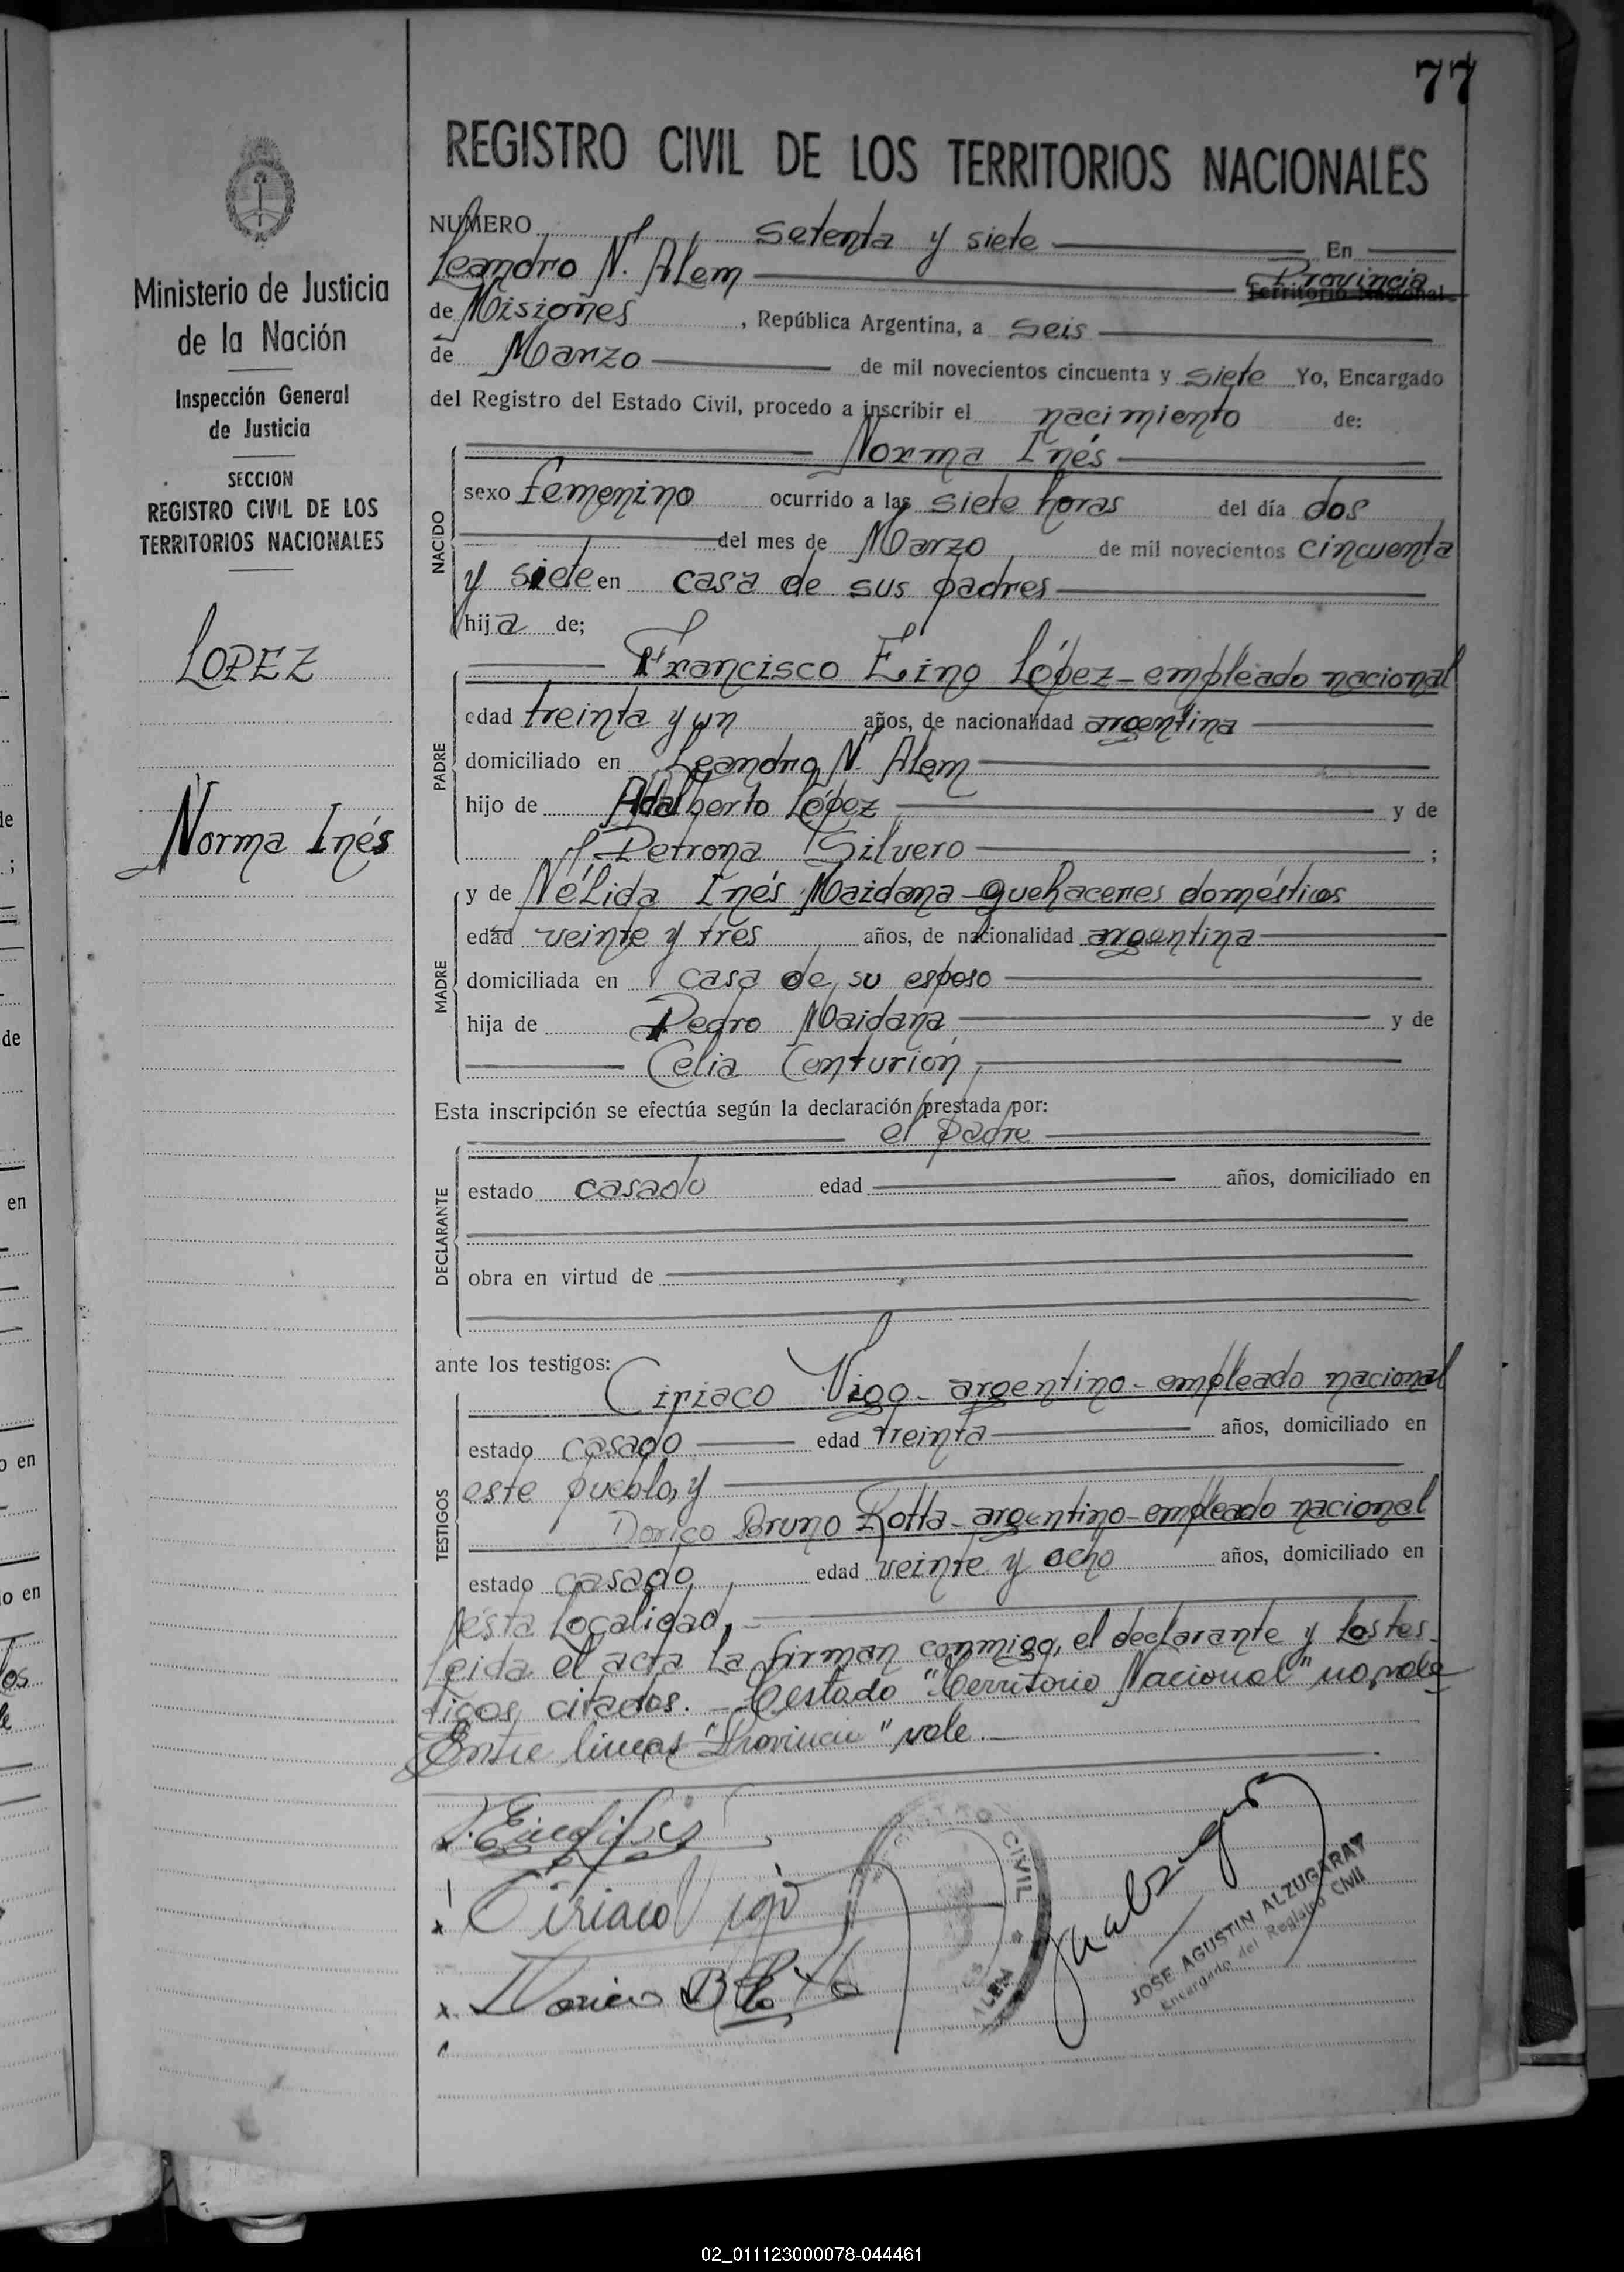 77
REGISTRO CIVIL DE LOS TERRITORIOS NACIONALES
Ministerio de Justicia
de la Nación
Inspección General
de Justicia
SECCION
REGISTRO CIVIL DE LOS
TERRITORIOS NACIONALES
LOPEZ
Norma Inés
NUMERO setenta y siete En
Leandro N. Alem Provincia
Territorio Nacional
de Misiones, República Argentina, a seis
de Marzo de mil novecientos cincuenta y siete Yo, Encargado
del Registro del Estado Civil, procedo a inscribir el nacimiento de:
Norma Inés
NACIDO
sexo femenino ocurrido a las siete horas del día dos
del mes de Marzo de mil novecientos cincuenta
y siete en casa de sus padres
hija de;
PADRE
Francisco Eino López - empleado nacional
edad treinta y un años, de nacionalidad argentina
domiciliado en Leandro N. Alem
hijo de Adalberto López y de
Petrona Silvero ;
MADRE
y de Nélida Inés Maidana - quehaceres domésticos
edad veinte y tres años, de nacionalidad argentina
domiciliada en casa de su esposo
hija de Pedro Maidana y de
Celia Centurión,
Esta inscripción se efectúa según la declaración prestada por:
el padre
DECLARANTE
estado casado edad años, domiciliado en
obra en virtud de
ante los testigos:
TESTIGOS
Ciriaco Vigo - argentino - empleado nacional
estado casado edad treinta años, domiciliado en
este pueblo, y
Dorico Bruno Rotta - argentino - empleado nacional
estado casado edad veinte y ocho años, domiciliado en
ésta localidad,
Leida el acta la firman conmigo, el declarante y los tes-
tigos citados. - Testado "Territorio Nacional" no vale
Entre lineas "Provincia" vale. -
Ciriaco Vigo
REGISTRO CIVIL
ALEM
JOSE AGUSTIN ALZUGARAY
Encargado del Registro Civil
de
;
de
en
o en
o en
02_011123000078-044461